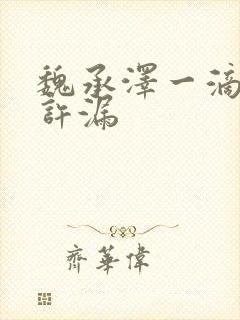 魏承澤一滴
許漏
齊華偉